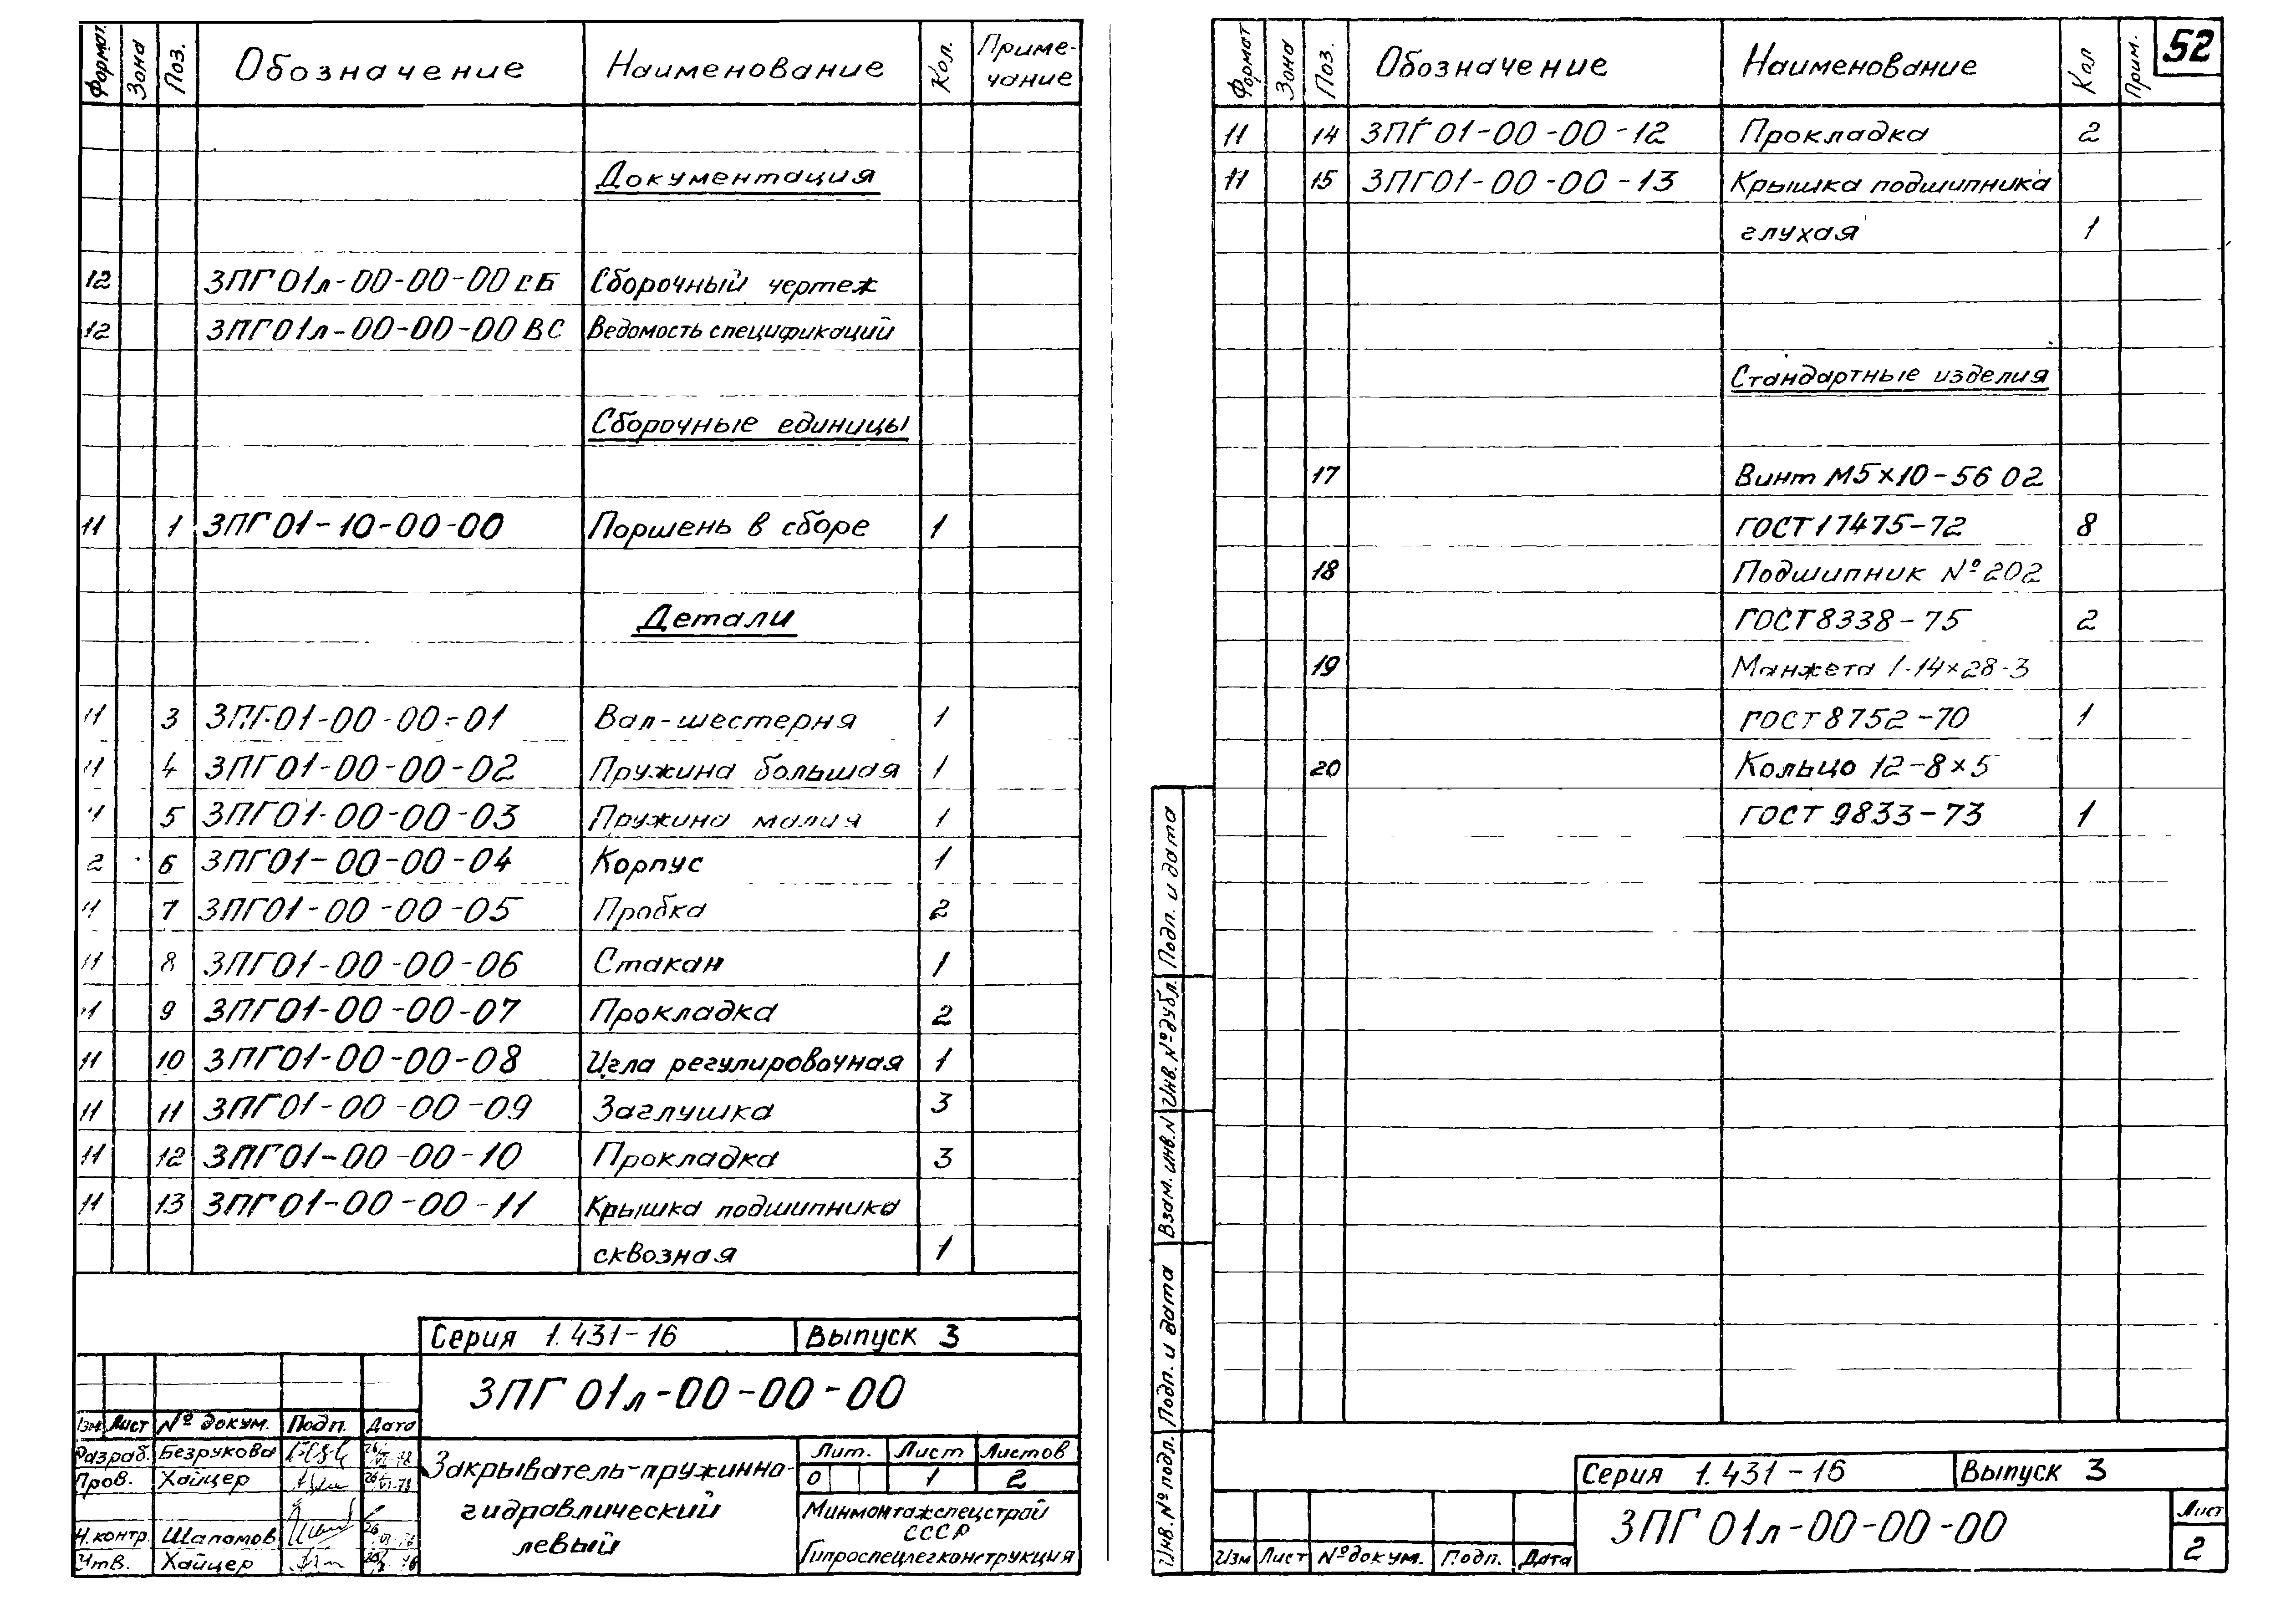 Формат Зона Поз. Обозначение Наименование Кол. Приме-
чание
Документация
12 ЗПГ01л-00-00-00СБ Сборочный чертеж
12 ЗПГ01л-00-00-00ВС Ведомость спецификаций
Сборочные единицы
11 1 ЗПГ01-10-00-00 Поршень в сборе 1
Детали
11 3 ЗПГ01-00-00-01 Вал-шестерня 1
11 4 ЗПГ01-00-00-02 Пружина большая 1
11 5 ЗПГ01-00-00-03 Пружина малая 1
2 6 ЗПГ01-00-00-04 Корпус 1
11 7 ЗПГ01-00-00-05 Пробка 2
11 8 ЗПГ01-00-00-06 Стакан 1
11 9 ЗПГ01-00-00-07 Прокладка 2
11 10 ЗПГ01-00-00-08 Игла регулировочная 1
11 11 ЗПГ01-00-00-09 Заглушка 3
11 12 ЗПГ01-00-00-10 Прокладка 3
11 13 ЗПГ01-00-00-11 Крышка подшипника
сквозная 1
Серия 1.431-16 Выпуск 3
ЗПГ 01л-00-00-00
Изм Лист № докум. Подп. Дата
Разраб. Безрукова
Пров. Хайцер
Н.контр. Шаламов
Утв. Хайцер
Закрыватель-пружинно-
гидравлический
левый
Лит. Лист Листов
О 1 2
Минмонтажспецстрой
СССР
Гипроспецлегконструкция
52
Формат Зона Поз. Обозначение Наименование Кол. Прим.
11 14 ЗПГ01-00-00-12 Прокладка 2
11 15 ЗПГ01-00-00-13 Крышка подшипника
глухая 1
Стандартные изделия
17 Винт М5х10-56 02
ГОСТ17475-72 8
18 Подшипник №202
ГОСТ8338-75 2
19 Манжета 1-14х28-3
ГОСТ8752-70 1
20 Кольцо 12-8х5
ГОСТ 9833-73 1
Подп. и дата
Инв. №дубл.
Взам. инв.N
Подп. и дата
Инв.№ подл.
Серия 1.431-16 Выпуск 3
ЗПГ 01л-00-00-00
Лист
2
Изм Лист №докум. Подп. Дата